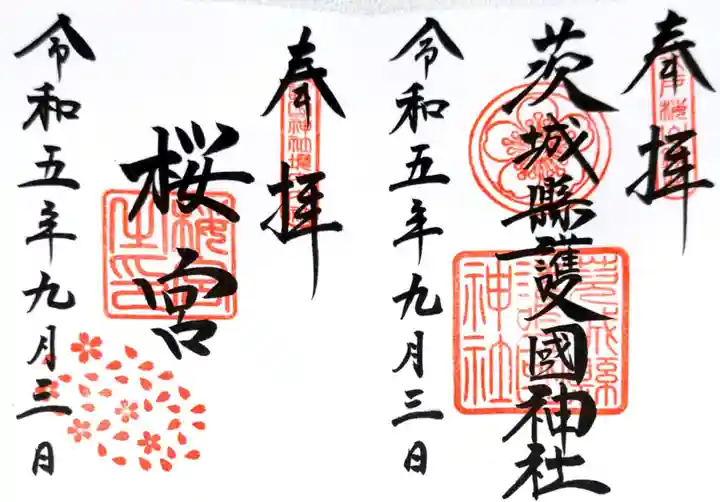 奉拝
茨城縣護國神社
茨城縣護國神社
令和五年九月三日
奉拝
桜宮
令和五年九月三日